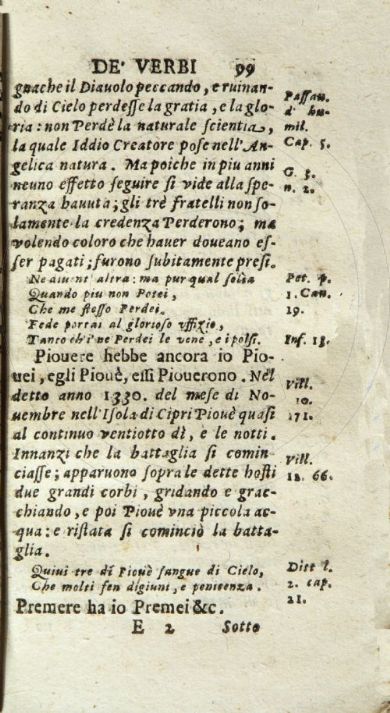 DE' VERBI 99
gnache il Diauolo peccando, e ruinan-
do di Cielo perdeſſe la gratia, e la glo-
ria: non Perdè la naturale ſcientia,
la quale Iddio Creatore poſe nell'An-
gelica natura. Ma poiche in piu anni
neuno effetto ſeguire ſi vide alla ſpe-
ranza hauuta; gli trè fratelli non ſo-
lamente la credenza Perderono; ma
volendo coloro che hauer doueano eſ-
ſer pagati; furono ſubitamente preſi.
altra: ma pur qual ſolia
Quando piu non Potei,
Che me ſteſſo Perdei.
Fede portai al glorioso vffizio,
Tanto ch'i' ne Perdei le vene, e i polſi.
Piouere hebbe ancora io Pio-
uei, egli Piouè, eſſi Piouerono. Nel
detto anno 1330. del meſe di No-
uembre nell'Iſola di Cipri Piouè quaſi
al continuo ventiotto dì, e le notti.
Innanzi che la battaglia ſi comin-
ciaſſe; apparuono ſopra le dette hoſti
due grandi corbi, gridando e grac-
chiando, e poi Piouè vna piccola ac-
qua: e riſtata ſi cominciò la batta-
glia.
Quiui tre dì Piouè ſangue di Cielo,
Che molti fen digiuni, e penitenza.
Premere ha io Premei &c.
E 2 Sotto
Paſſau.
d' hu-
mil.
Cap. 5.
G. 3.
n. 2.
Pet. p.
1. Can.
19.
Inf. 13.
Vill.
10.
171.
Vill.
12. 66.
Ditt l.
2. cap.
21.